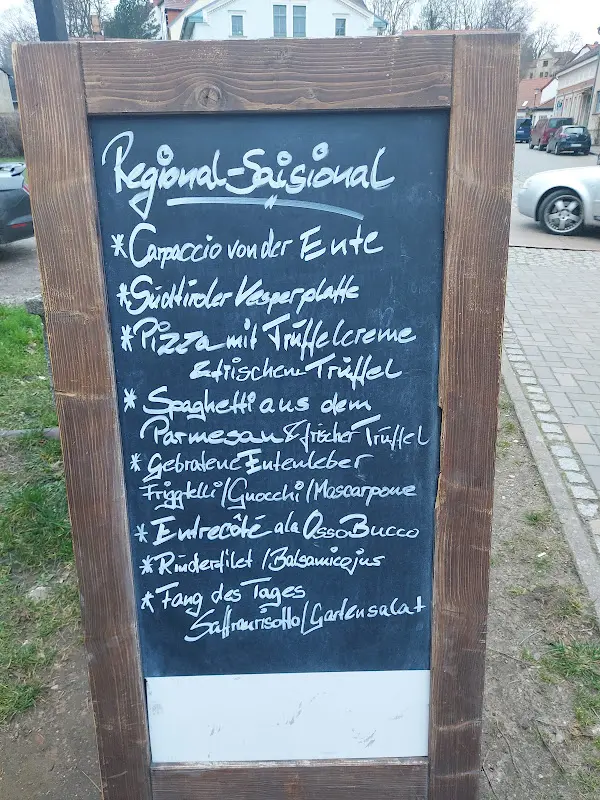 Regional-Saisional
* Carpaccio von der Ente
* Südtiroler Vesperplatte
* Pizza mit Trüffelcreme
& frischem Trüffel
* Spaghetti aus dem
Parmesan & frischer Trüffel
* Gebratene Entenleber
Friggtelli/Gnocchi/Mascarpone
* Entrecôté ala Osso Bucco
* Rinderfilet / Balsamicojus
* Fang des Tages
Saffranrisotto/Gartensalat